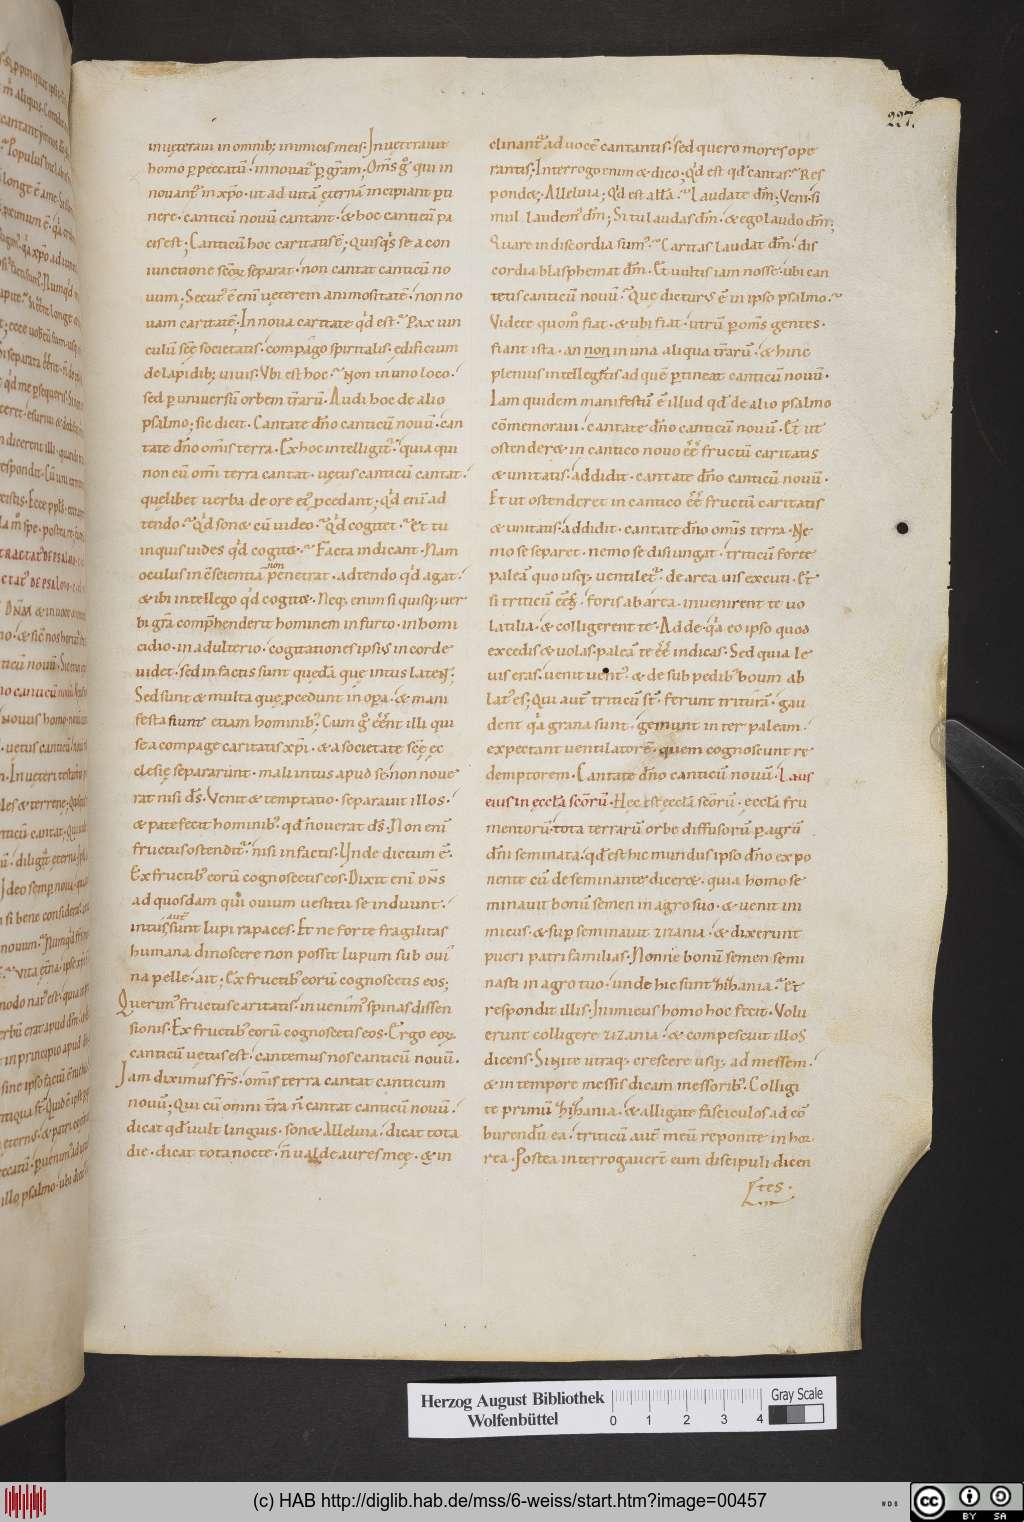 227.
inueteraui in omnib; inimicis meis. Inueterauit
homo p peccatū. innouat̄ p gr̄am; Om̄s g̊ qui in
nouant̄ in xp̄o. ut ad uitā ęternā incipiant pti
nere. canticū nouū cantant. & hoc canticū pa
cis est; Canticū hoc caritatis ē; Quisq̊s se a con
iunctione sc̄oꝝ separat. non cantat canticū no
uum; Secut' ē eni ueterem animositatē. non no
uam caritatē. In noua caritate qd est? Pax uin
culū sc̄ę societatis. compago spiritalis. ędificium
de lapidib; uiuis. Vbi est hoc? Non in uno loco.
sed p uniuersū orbem t̄rarū. Audi hoc de alio
psalmo; sic dicit. Cantate dn̄o canticū nouū. can
tate dn̄o omis terra. Ex hoc intelligit̄. quia qui
non cū omī terra cantat. uetus canticū cantat.
quęlibet uerba de ore ei' pcedant; Qd eni ad
tendo? Qd son& cū uideo? Qd cogitet? Et tu
inquis uides qd cogit&? Facta indicant. Nam
oculus in c̄scientiā non penetrat. adtendo qd agat.
& ibi intellego qd cogit&. Neq; enim si quisq; uer
bi gr̄a comp̄henderit hominem in furto. in homi
cidio. in adulterio. cogitationes ipsi' in corde
uidet. sed in factis sunt quędā quę intus latent;
Sed sunt & multa quę pcedunt in opa. & mani
festa fiunt etiam hominib;. Cum g̊ eent illi qui
se a compage caritatis xp̄i. & a societate sc̄ę ęc
clesię separarunt. mali intus apud se. non noue
rat nisi ds̄. Venit & temptatio. separauit illos.
& patefecit hominib; qd nouerat ds̄. Non eni
fructus ostendit̄. nisi in factis. Vnde dictum ē.
Ex fructib; eorū cognoscetis eos. Dixit eni dn̄s
ad quosdam qui ouium uestitu se induunt.
intus aut̄ sunt lupi rapaces. Et ne forte fragilitas
humana dinoscere non possit lupum sub oui
na pelle. ait; Ex fructib; eorū cognoscetis eos;
Querim' fructus caritatis. inuenim' spinas dissen
sionis. Ex fructib; eorū cognoscetis eos. Ergo eoꝝ
canticū uetus est. cantemus nos canticū nouū.
Iam diximus fr̄s. om̄is terra cantat canticum
nouū; Qui cū omni t̄ra n̄ cantat canticū nouū.
dicat qd uult linguis. son& Alleluia. dicat tota
die. dicat tota nocte. n̄ ualde aures meę. & in
clinant̄ ad uocē cantantis. sed quero mores ope
rantis; Interrogo enim & dico; Qd est qd cantas? Res
pond&; Alleluia; Qd est all̄a? Laudate dm̄; Veni. si
mul laudem' dm̄; Si tu laudas dm̄. & ego laudo dm̄;
Quare in discordia sum'? Caritas laudat dm̄. dis
cordia blasphemat dm̄. Et uultis iam nosse. ubi can
tetis canticū nouū? Quę dictur' ē in ipso psalmo?
Videte quom̊ fiat. & ubi fiat. utrū p om̄s gentes.
fiant ista. an non in una aliqua t̄rarū. & hinc
plenius intellegetis ad quē ptineat canticū nouū.
Iam quidem manifestū ē illud qd de alio psalmo
cōmemoraui. cantate dn̄o canticū nouū. Et ut
ostender& in cantico nouo ee fructū caritatis
& unitatis. addidit. cantate dn̄o canticū nouū.
Et ut ostenderet in cantico ee fructū caritatis
& unitatis. addidit. cantate dn̄o omis terra. Ne
mo se separet. nemo se disiungat. triticū forte
paleā quo usq; ventilet̄. de area uis excuti. Et
si triticū eēs. foris ab area. inuenirent te uo
latilia. & colligerent te. Adde. qa eo ipso quod
excedis & uolas. paleā te ee indicas. Sed quia le
uis eras. uenit uent'. & de sub pedib; boum ab
lat' es; Qui aut̄ triticū st̄. ferunt triturā. gau
dent qa grana sunt. gemunt inter paleam.
expectant uentilatorē. quem cognoscunt re
demptorem. Cantate dn̄o canticū nouū. Laus
eius in ęccl̄a sc̄orū. Hec est ęccl̄a sc̄orū. ęccl̄a fru
mentorū. tota terrarū orbe diffusorū p agrū
dn̄i seminata. qd est hic mundus ipso dn̄o expo
nente cū de seminante dicer&. quia homo se
minauit bonū semen in agro suo. & uenit ini
micus. & sup seminauit zizania. & dixerunt
pueri patri familias. Nonne bonū semen semi
nasti in agro tuo. unde hic sunt zizania? Et
respondit illis. Inimicus homo hoc fecit. Volu
erunt colligere zizania. & compescuit illos
dicens. Sinite utraq; crescere usq; ad messem.
& in tempore messis dicam messorib;. Colligi
te primū zizania. & alligate fasciculos ad cō
burendū ea. triticū aut̄ meū reponite in hor
rea. Postea interrogauert̄ eum discipuli dicen
tes.
Herzog August Bibliothek
Wolfenbüttel
0 1 2 3 4
Gray Scale
(c) HAB http://diglib.hab.de/mss/6-weiss/start.htm?image=00457
WDB
cc BY SA